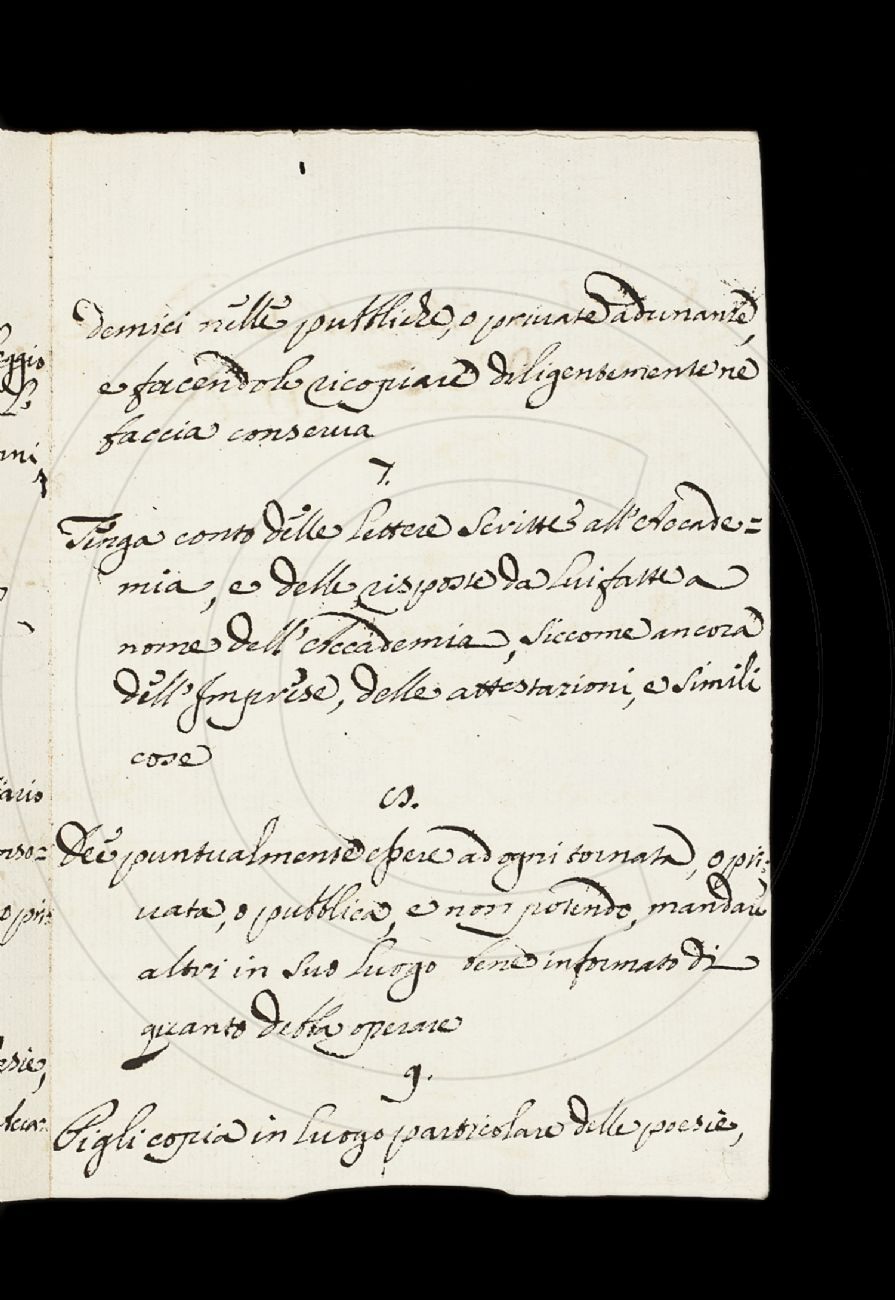 demici nelle pubbliche, o private adunanze,
e facendole ricopiare diligentemente ne
faccia conserva
7.
Tenga conto delle lettere scritte all'Accade=
mia, e delle risposte da lui fatte a
nome dell'Accademia, siccome ancora
dell'Imprese, delle attestazioni, e simili
cose
8.
Dee puntualmente essere ad ogni tornata, o pri=
vata, o pubblica, e non potendo, mandare
altri in suo luogo bene informato di
quanto debba operare
9.
Pigli copia in luogo particolare delle poesie,